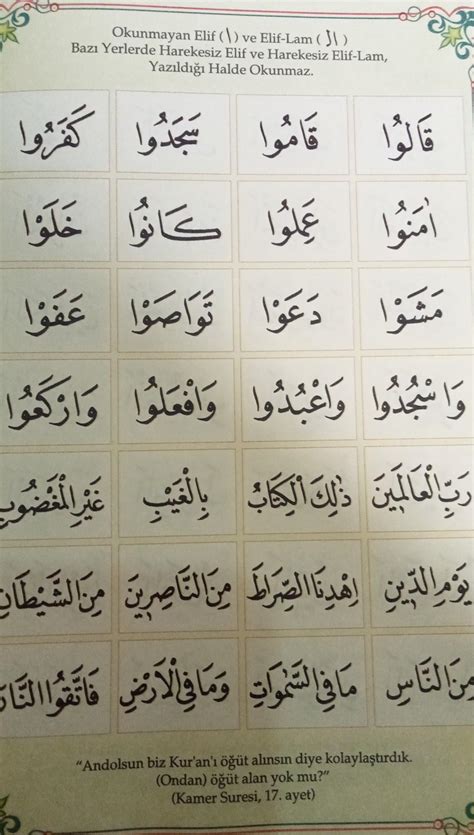 Okunmayan Elif ( ا ) ve Elif-Lam ( ال )
Bazı Yerlerde Harekesiz Elif ve Harekesiz Elif-Lam,
Yazıldığı Halde Okunmaz.
قَالُوا قَامُوا سَجَدُوا كَفَرُوا
اٰمَنُوا عَمِلُوا كَانُوا خَلَوْا
مَشَوْا دَعَوْا تَوَاصَوْا عَفَوْا
وَاسْجُدُوا وَاعْبُدُوا وَافْعَلُوا وَارْكَعُوا
رَبِّ الْعَالَمِينَ ذٰلِكَ الْكِتَابُ بِالْغَيْبِ غَيْرِ الْمَغْضُوبِ
يَوْمِ الدِّينِ اِهْدِنَا الصِّرَاطَ مِنَ النَّاصِرِينَ مِنَ الشَّيْطَانِ
مِنَ النَّاسِ مَا فِي السَّمٰوَاتِ وَمَا فِي الْاَرْضِ فَاتَّقُوا النَّارَ
“Andolsun biz Kur'an'ı öğüt alınsın diye kolaylaştırdık.
(Ondan) öğüt alan yok mu?”
(Kamer Suresi, 17. ayet)